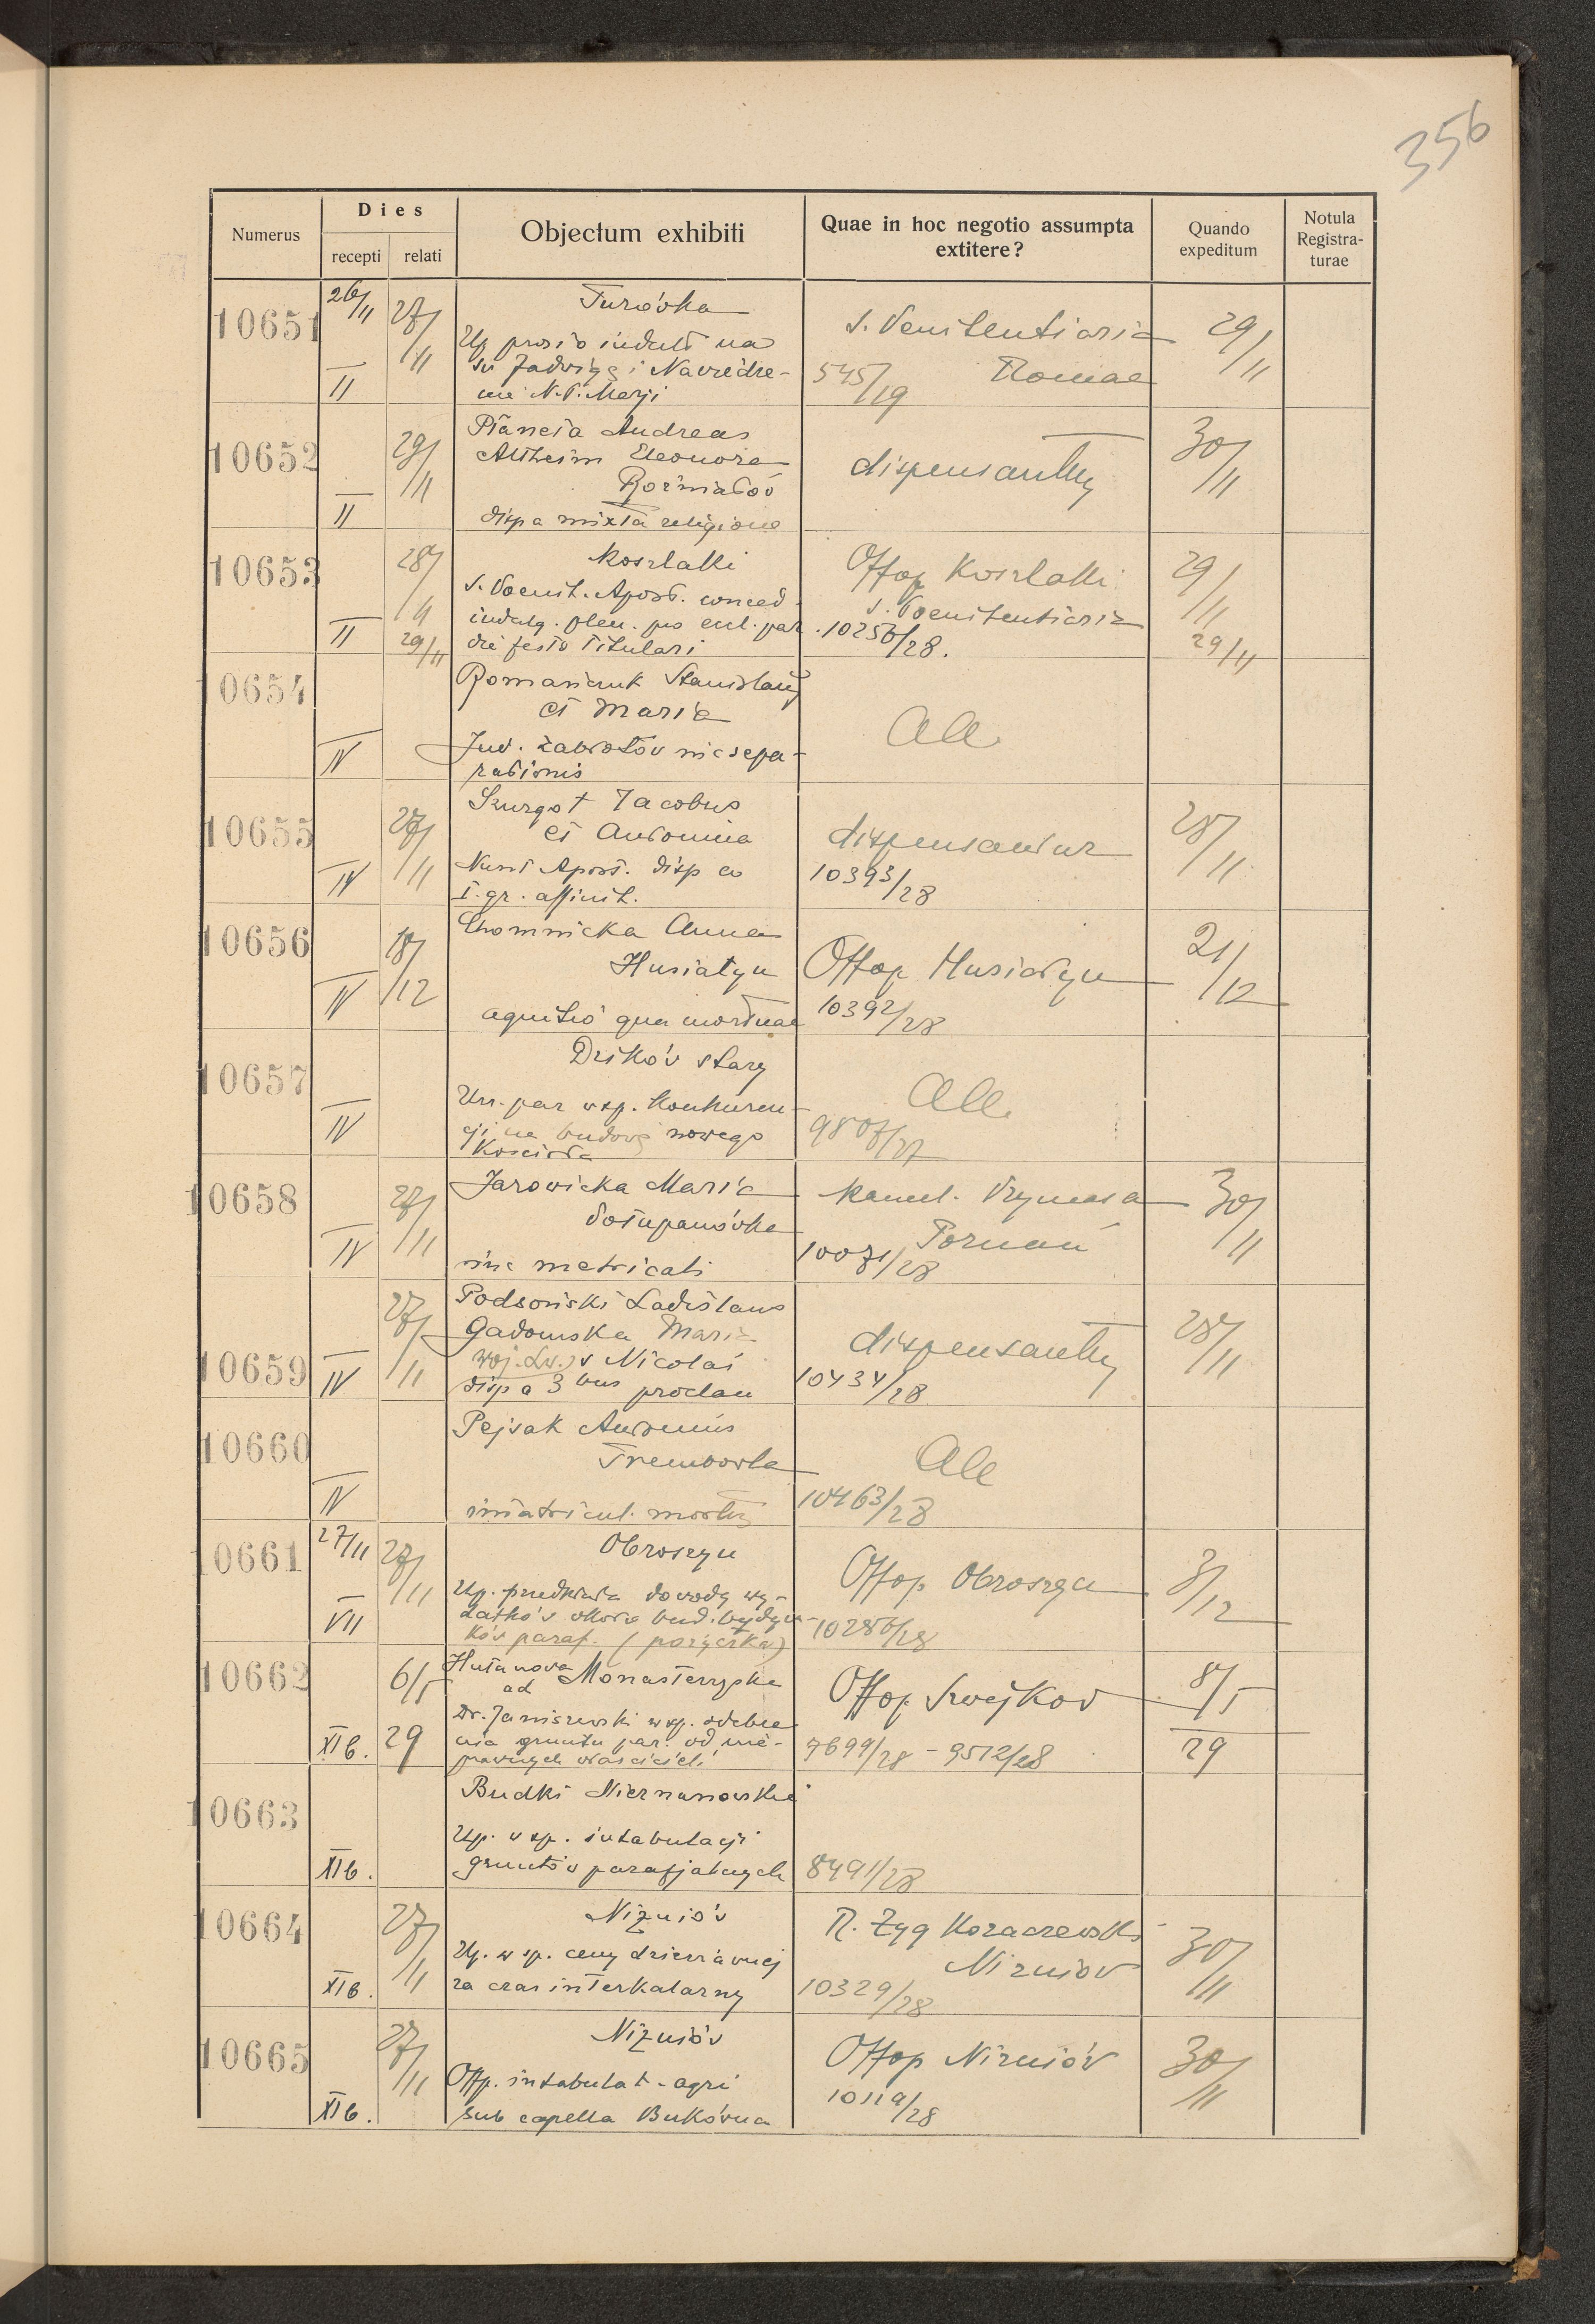 356
Numerus
Dies
recepti
relati
Objectum exhibiti
Quae in hoc negotio assumpta
extitere?
Quando
expeditum
Notula
Registra-
turae
10651
26/11
27/11
II
Turówka
Up prosi o indult na
św Jadwigę i Nawiedze-
nie N.P. Marji
S. Penitentiaria
Romae
545/19
29/11
10652
29/11
II
Andreas
Altheim Eleonora
Rożniatów
disp a mixta religione
dispensantur
30/11
10653
28/11
29/11
II
Koszlaki
S. Poenit. Apost. conced
indulg. plen. pro eccl. par.
die festo Titulari
Offop Koszlaki
S. Poenitentiaria
10256/28.
29/11
29/11
10654
IV
Romańczuk Stanislaus
et Maria
Zabłotów
rationis
All
10655
27/11
IV
Szurgot Jacobus
et Antonina
Nunt Apost. disp a
I. gr. affinit.
dispensantur
10393/28
28/11
10656
18/12
IV
Chomnicka Anna
Husiatyn
agnitio qua mortuae
Offop Husiatyn
10392/28
21/12
10657
IV
Dzików stary
Urz. par wsp. konkuren-
cji na budowę nowego
Kościoła
All
9807/27
10658
27/11
IV
Jarowicka Maria
Sołupanówka
sine metricali
Kancel. Prymasa
Poznań
10071/28
30/11
10659
27/11
IV
Podsoński Ladislaus
Gadomska Maria
woj. Lw. S Nicolai
disp a 3bus proclam
dispensantur
10434/28
28/11
10660
IV
Pejsak Antonius
Trembowla
immatricul. mortis
All
10463/28
10661
27/11
27/11
VII
Obroszyn
Up. przedkłada dowody wy-
datków około bud. budyn-
ków paraf. (pożyczka)
Offop Obroszyn
10286/28
3/12
10662
6/5
29
XIb.
Huta nova
ad Monasterzyska
Dr. Janiszewski wsp. odebra
nia gruntu par. od nie-
prawnych właścicieli
Offop Szwejków
9699/28 - 9512/28
8/5
29
10663
XIb.
Budki Nieznanowskie
Up. wsp. intabulacji
gruntów parafjalnych
8491/28
10664
27/11
XIb.
Niżniów
Up. w sp. ceny dzierżawnej
za czas interkalarny
R. Zyg Kozaczewski
Niżniów
10329/28
30/11
10665
27/11
XIb.
Niżniów
Offp. intabulat. agri
sub capella Bukówna
Offop Niżniów
10119/28
30/11